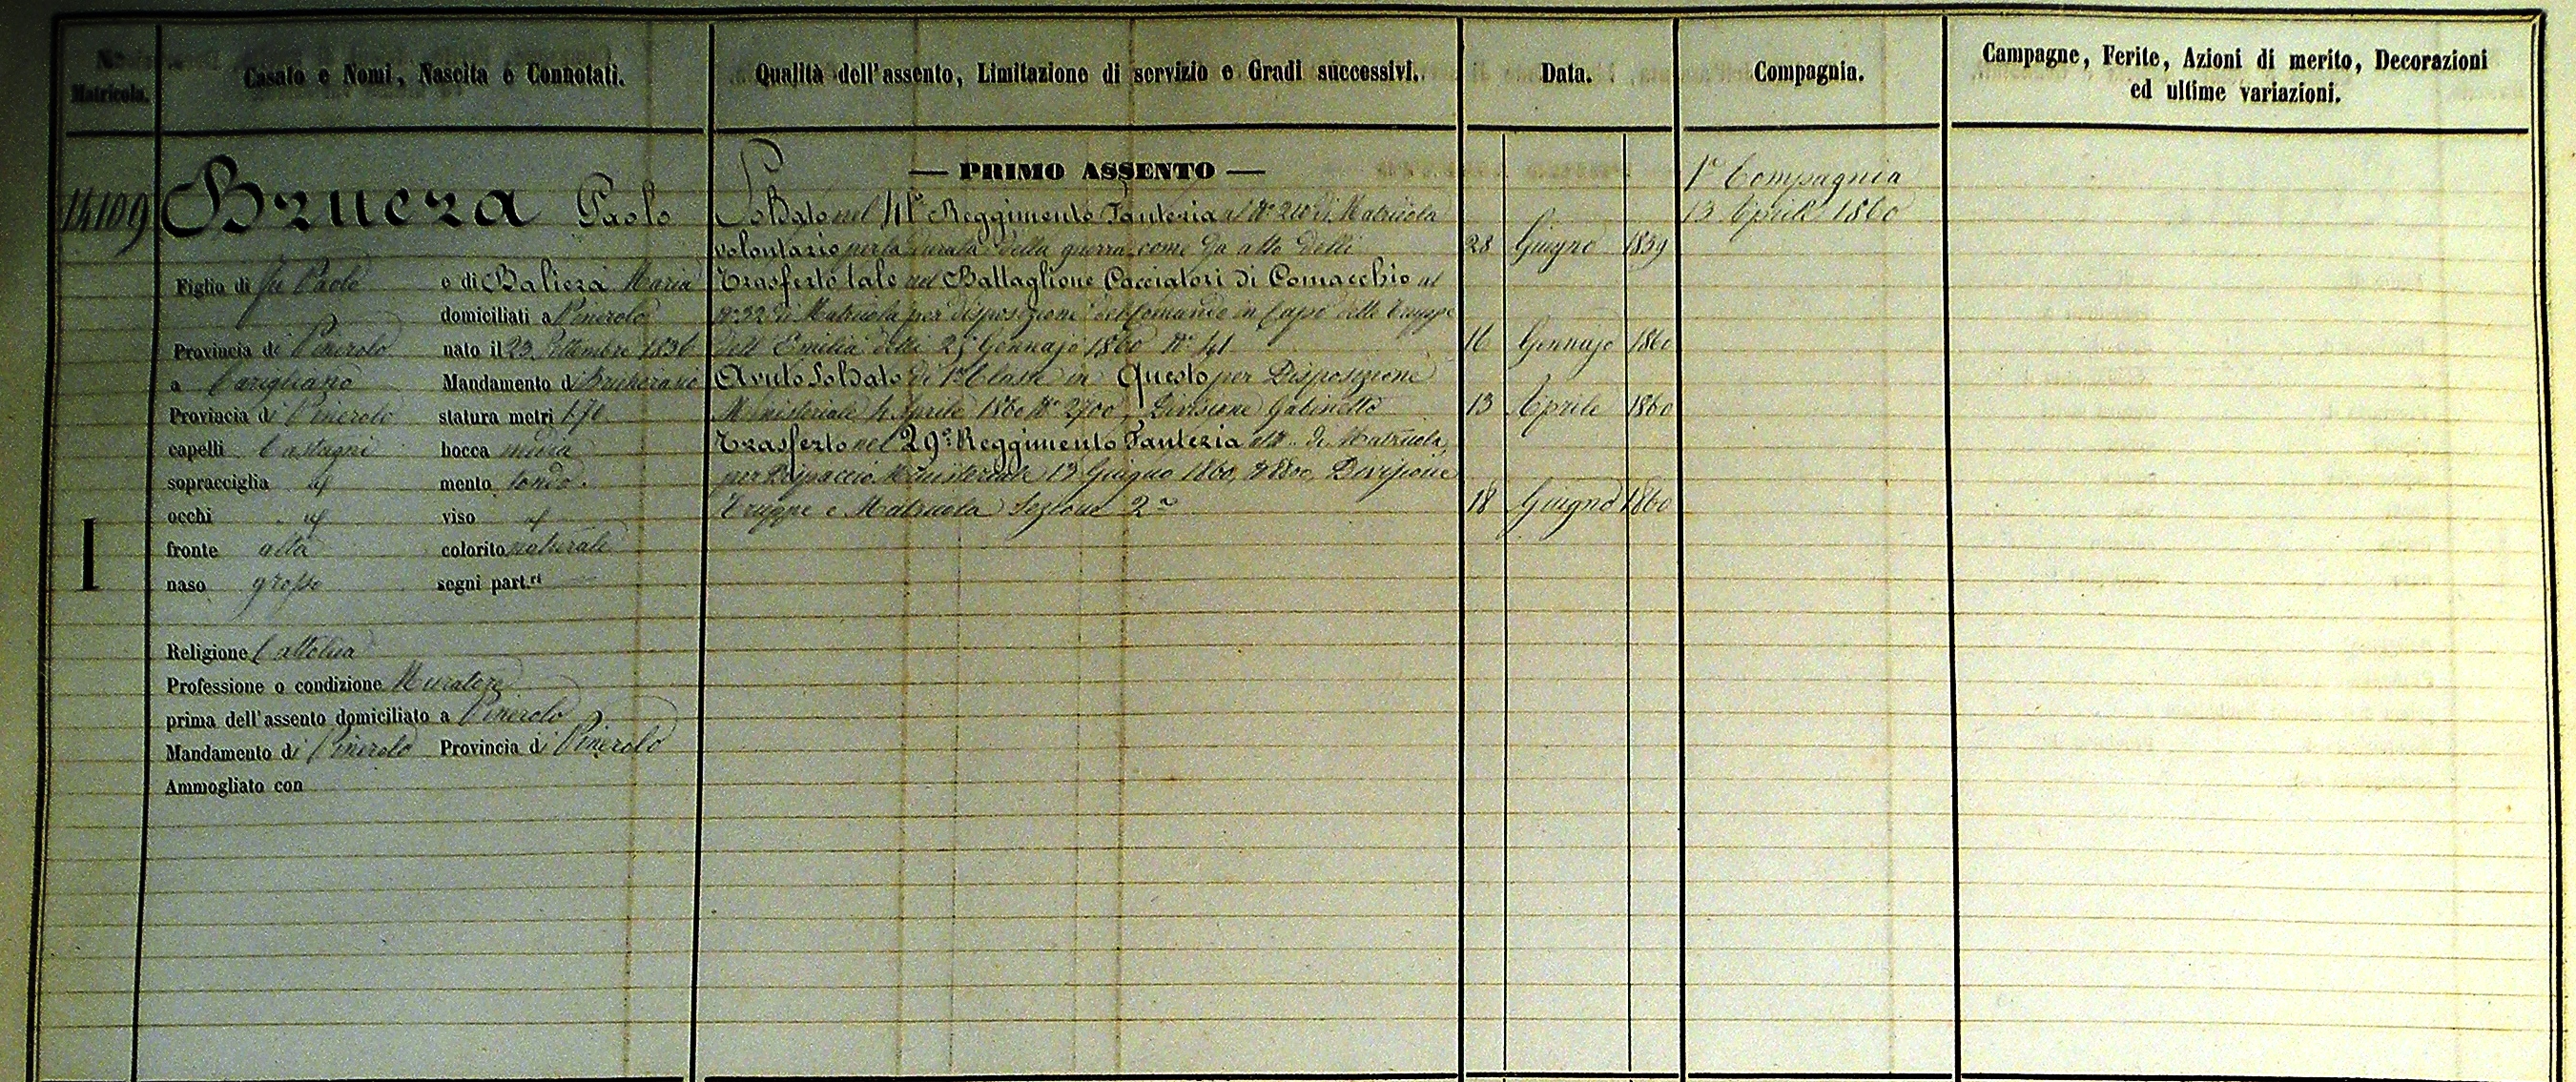 N.° Matricola.
Casato e Nomi, Nascita e Connotati.
Qualità dell'assento, Limitazione di servizio e Gradi successivi.
Data.
Compagnia.
Campagne, Ferite, Azioni di merito, Decorazioni
ed ultime variazioni.
14109
Bruera Paolo
Figlio di fu Paolo e di Baliera Maria
domiciliati a Pinerolo
Provincia di Pinerolo nato il 23 Settembre 1836
a Mandamento di Bricherasio
Provincia di Pinerolo statura metri 1.70
capelli Castagni bocca media
sopracciglia id mento tondo
occhi id viso id
fronte alta colorito naturale
naso grosso segni part.ri
I
Religione Cattolica
Professione o condizione Muratore
prima dell'assento domiciliato a Pinerolo
Mandamento di Pinerolo Provincia di Pinerolo
Ammogliato con
— PRIMO ASSENTO —
Soldato nel 41° Reggimento Fanteria al N° 210 di Matricola
volontario per la durata della guerra come da atto delli 28 Giugno 1859
Trasferto tale nel Battaglione Cacciatori di Comacchio al
N° 32 di Matricola per disposizione del Comando in Capo delle Truppe
dell'Emilia delli 25 Gennajo 1860 N° 41 16 Gennajo 1860
Avuto Soldato di 1a Classe in Questo per Disposizione
Ministeriale 4 Aprile 1860 N° 2700, Divisione Gabinetto 13 Aprile 1860
Trasferto nel 29° Reggimento Fanteria al N. di Matricola,
per Dispaccio Ministeriale 13 Giugno 1860, N 8800, Divisione
Truppe e Matricola Sezione 2a 18 Giugno 1860
1a Compagnia
13 Aprile 1860